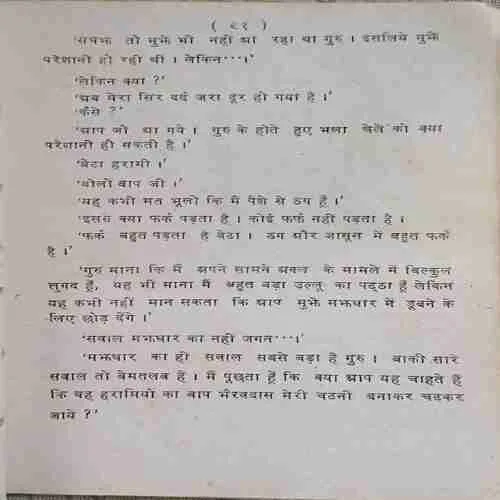 ( ८१ )
'समझ तो मुझे भी नहीं आ रहा था गुरु । इसलिये मुझे
परेशानी हो रही थी । लेकिन···।'
'लेकिन क्या ?'
'अब मेरा सिर दर्द जरा दूर हो गया है ।'
'कैसे ?'
'आप जो आ गये । गुरु के होते हुए भला चेले को क्या
परेशानी हो सकती है ।'
'बेटा हरामी ।'
'बोलो बाप जी ।'
'यह कभी मत भूलो कि मैं पेशे से ठग हूँ ।'
'इससे क्या फर्क पड़ता है । कोई फर्क नहीं पड़ता है ।
'फर्क बहुत पड़ता है बेटा । ठग और जासूस में बहुत फर्क
है ।'
'गुरु माना कि मैं अपने सामने अक्ल के मामले में बिल्कुल
लुगद हूँ, यह भी माना मैं बहुत बड़ा उल्लू का पट्ठा हूँ लेकिन
यह कभी नहीं मान सकता कि आप मुझे मझधार में डूबने के
लिए छोड़ देंगे ।'
'सवाल मझधार का नहीं जगत···।'
'मझधार का ही सवाल सबसे बड़ा है गुरु । बाकी सारे
सवाल तो बेमतलब हैं । मैं पूछता हूँ कि क्या आप यह चाहते हैं
कि वह हरामियों का बाप भैरवदास मेरी चटनी बनाकर चटकर
जाये ?'